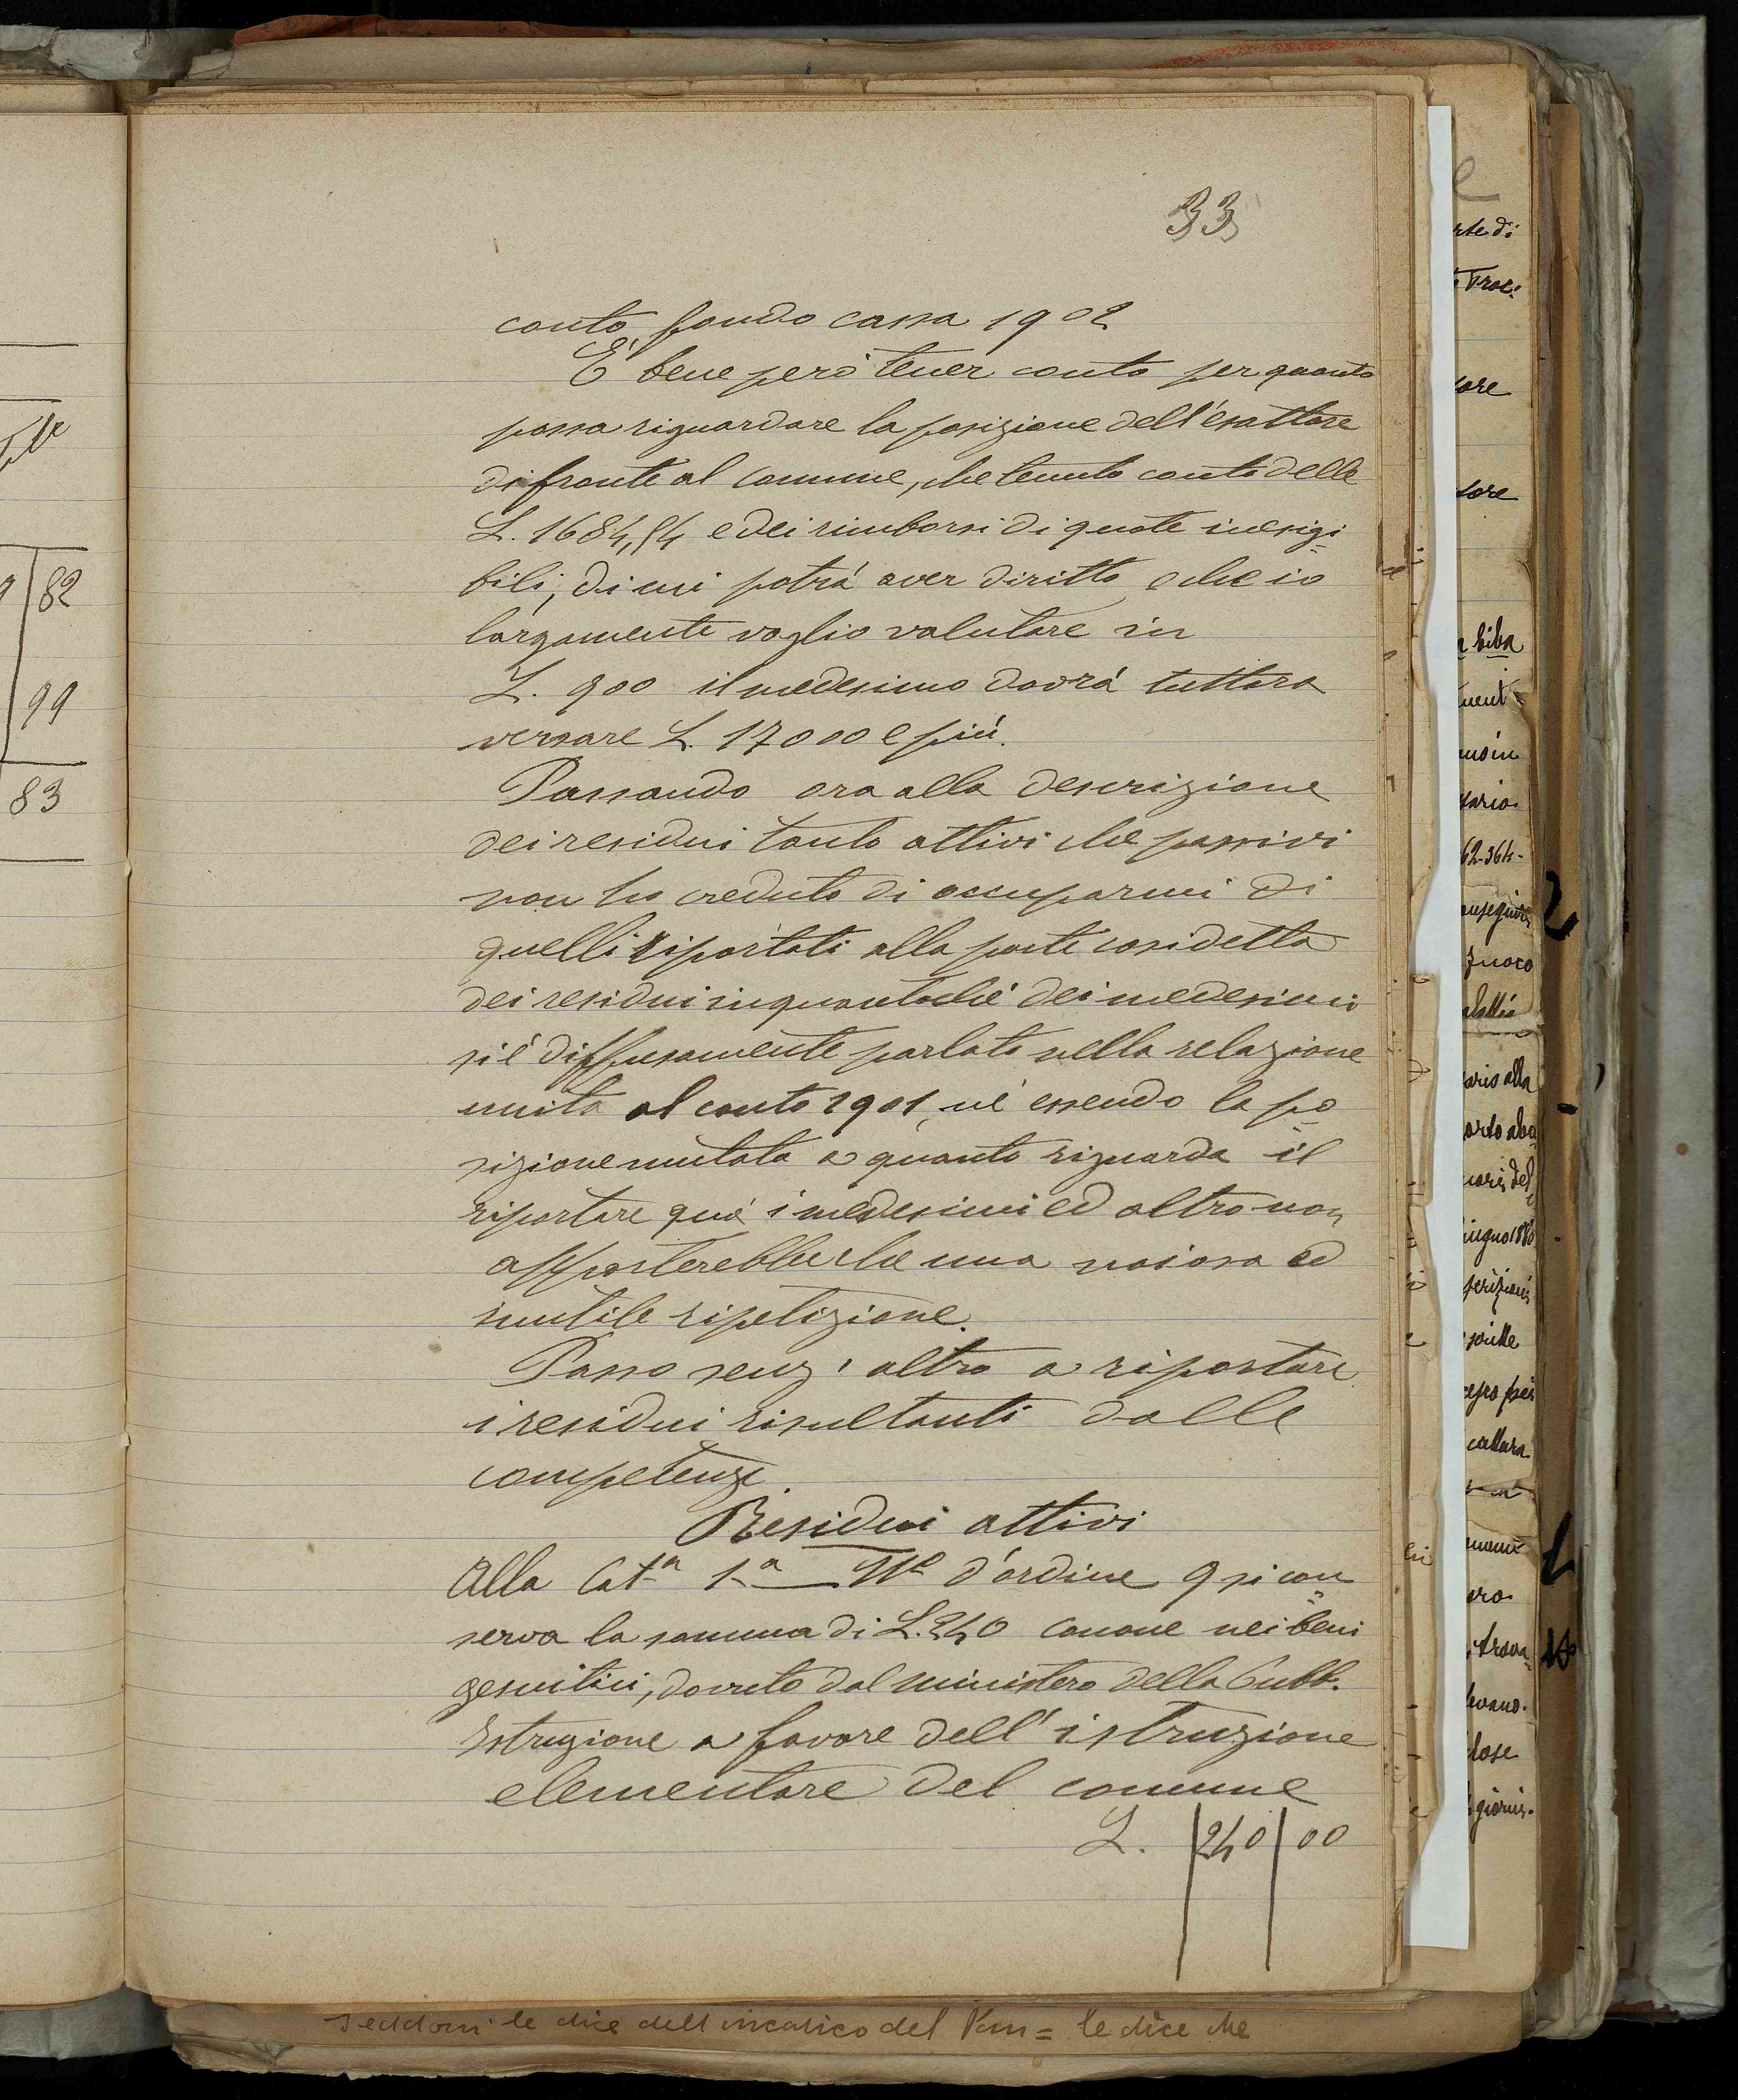 33
conto fondo cassa 1902
É bene però tener conto per quanto
possa riguardare la posizione dell'esattore
di fronte al comune, che tenuto conto delle
L. 1684,54 e dei rimborsi di quote inesigi=
bili, di cui potrá aver diritto e che io
largamente voglio valutare in
L. 900 il medesimo dovrá tuttora
versare L. 17000 e piú.
Passando ora alla descrizione
dei residui tanto attivi che passivi
non ho creduto di occuparmi di
quelli riportati alla parte cosidetta
dei residui inquantoché dei medesimi
si é diffusamente parlato nella relazione
unita al conto 1901, né essendo la po=
sizione mutata a quanto riguarda il
riportare quí i medesimi ed altro non
apporterebbe che una noiosa ed
inutile ripetizione.
Passo senz'altro a riportare
i residui risultanti dalle
competenze.
Residui attivi
Alla Cat.a 1.a — No d'ordine 9 si con=
serva la somma di L. 240 canone nei beni
gesuitici, dovuto dal ministero della Pubb.
Istruzione a favore dell'istruzione
elementare del comune
L. 240 00
82
99
83
rte di
tore
62-364-
fuoco
saris alla
giugno 1880
giorni.
le dice dell incarico del = le dice che